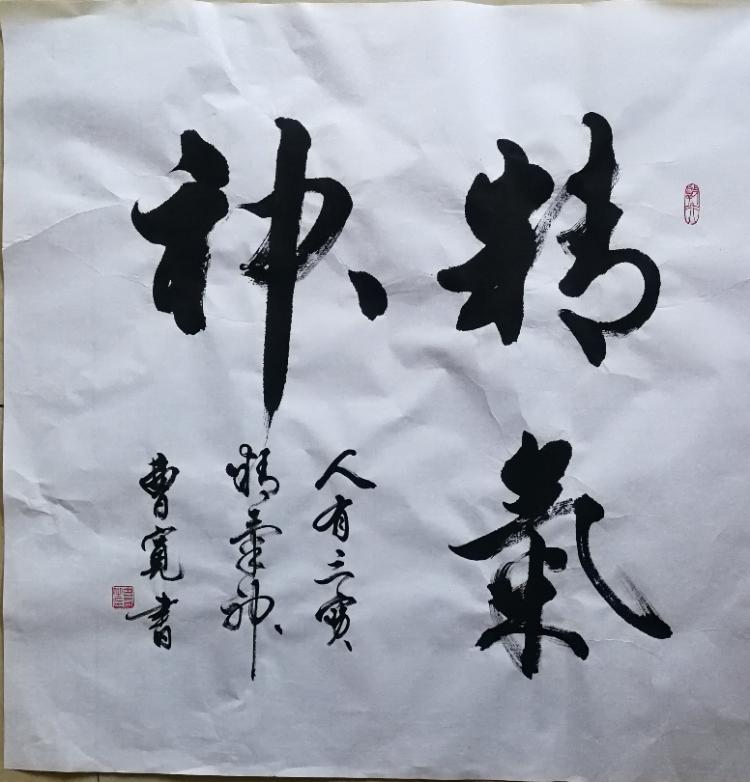 精氣
神
人有三寶
精氣神
曹寬書